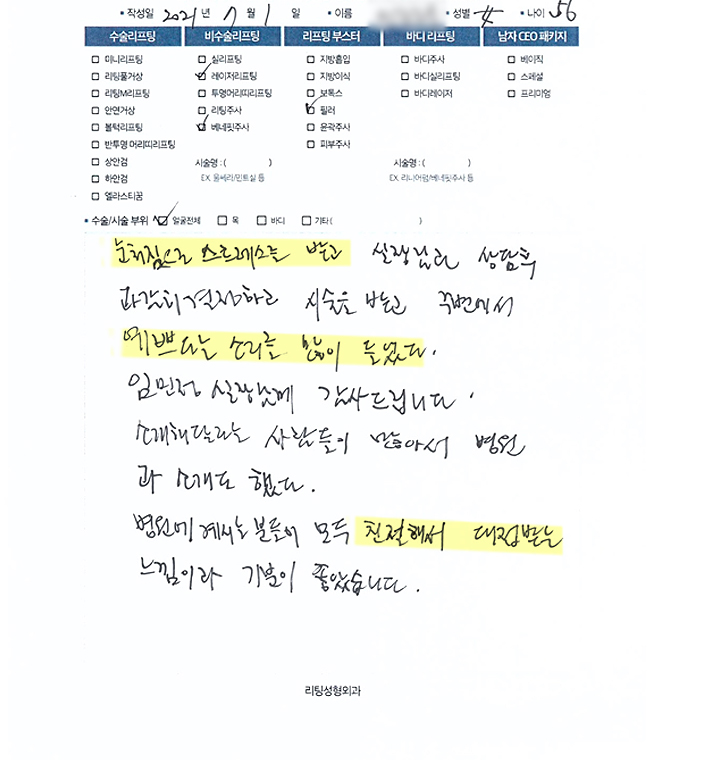 • 작성일 2021 년 7 월 1 일 • 이름 • 성별 • 나이 56
수술리프팅 비수술리프팅 리프팅 부스터 바디 리프팅 남자 CEO 패키지
미니리프팅 실리프팅 지방흡입 바디주사 베이직
리팅풀거상 레이저리프팅 지방이식 바디실리프팅 스페셜
리팅M리프팅 투명머리띠리프팅 보톡스 바디레이저 프리미엄
안면거상 리팅주사 필러
볼턱리프팅 베네핏주사 윤곽주사
반투명 머리띠리프팅 피부주사
상안검 시술명 : ( ) 시술명 : ( )
하안검 EX. 울쎄라/민트실 등 EX. 리니어펌/베네핏주사 등
엘라스티꿈
• 수술/시술 부위 얼굴전체 목 바디 기타 ( )
눈처짐으로 스트레스를 받고 실장님과 상담후
과감히 결정하고 시술을 받고 주변에서
예쁘다는 소리를 많이 들었다.
임민정 실장님께 감사드립니다.
소개해달라는 사람들이 많아서 병원
과 소개도 했다.
병원에 계시는 분들이 모두 친절해서 대접받는
느낌이라 기분이 좋았습니다.
리팅성형외과